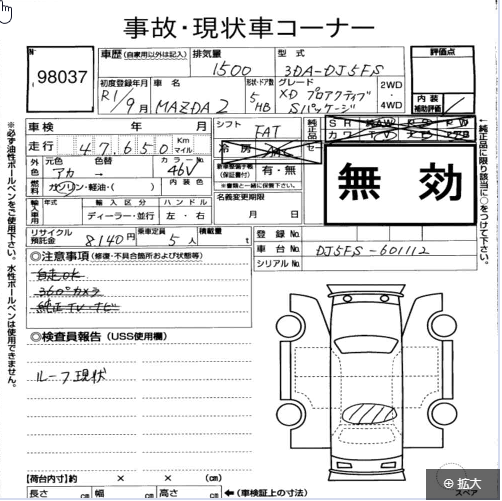 事故・現状車コーナー
No 98037
車歴(自家用以外は記入) 排気量 1500 型式 3DA-DJ5FS
評価点
初度登録年月 R1/9月 車名 MAZDA2 形状・ドア数 5 HB グレード XD プロアクティブ Sパッケージ 2WD・4WD
内装 補助評価
車検 年 月
走行 47,650 Km マイル
シフト FAT
冷房 AAC
純正品
SR AW PS PW
カワ TV ナビ エアB
外色 元色 アカ 色替 → カラーNo. 46V
燃料 ガソリン・軽油・( ) 内装色
新車整備手帳(保証書付) 有・無
※書類と一緒に保管下さい。
無効
輸入車用 年式 輸入区分 ディーラー・並行 ハンドル 左・右
名義変更期限 月 日
リサイクル預託金 8,140円 乗車定員 5人 積載量 t
登録No.
車台No. DJ5FS-601112
シリアルNo.
◎注意事項(修復・不具合箇所および状態等)
自走OK
360°カメラ
純正TV・ナビ
◎検査員報告(USS使用欄)
ルーフ現状
【荷台内寸】約 × × (cm)
長さ cm 幅 cm 高さ cm ←(車検証上の寸法)
スペア
拡大
※必ず油性ボールペンをご使用下さい。水性ボールペンは使用できません。
※純正品に限り該当に○をつけて下さい。